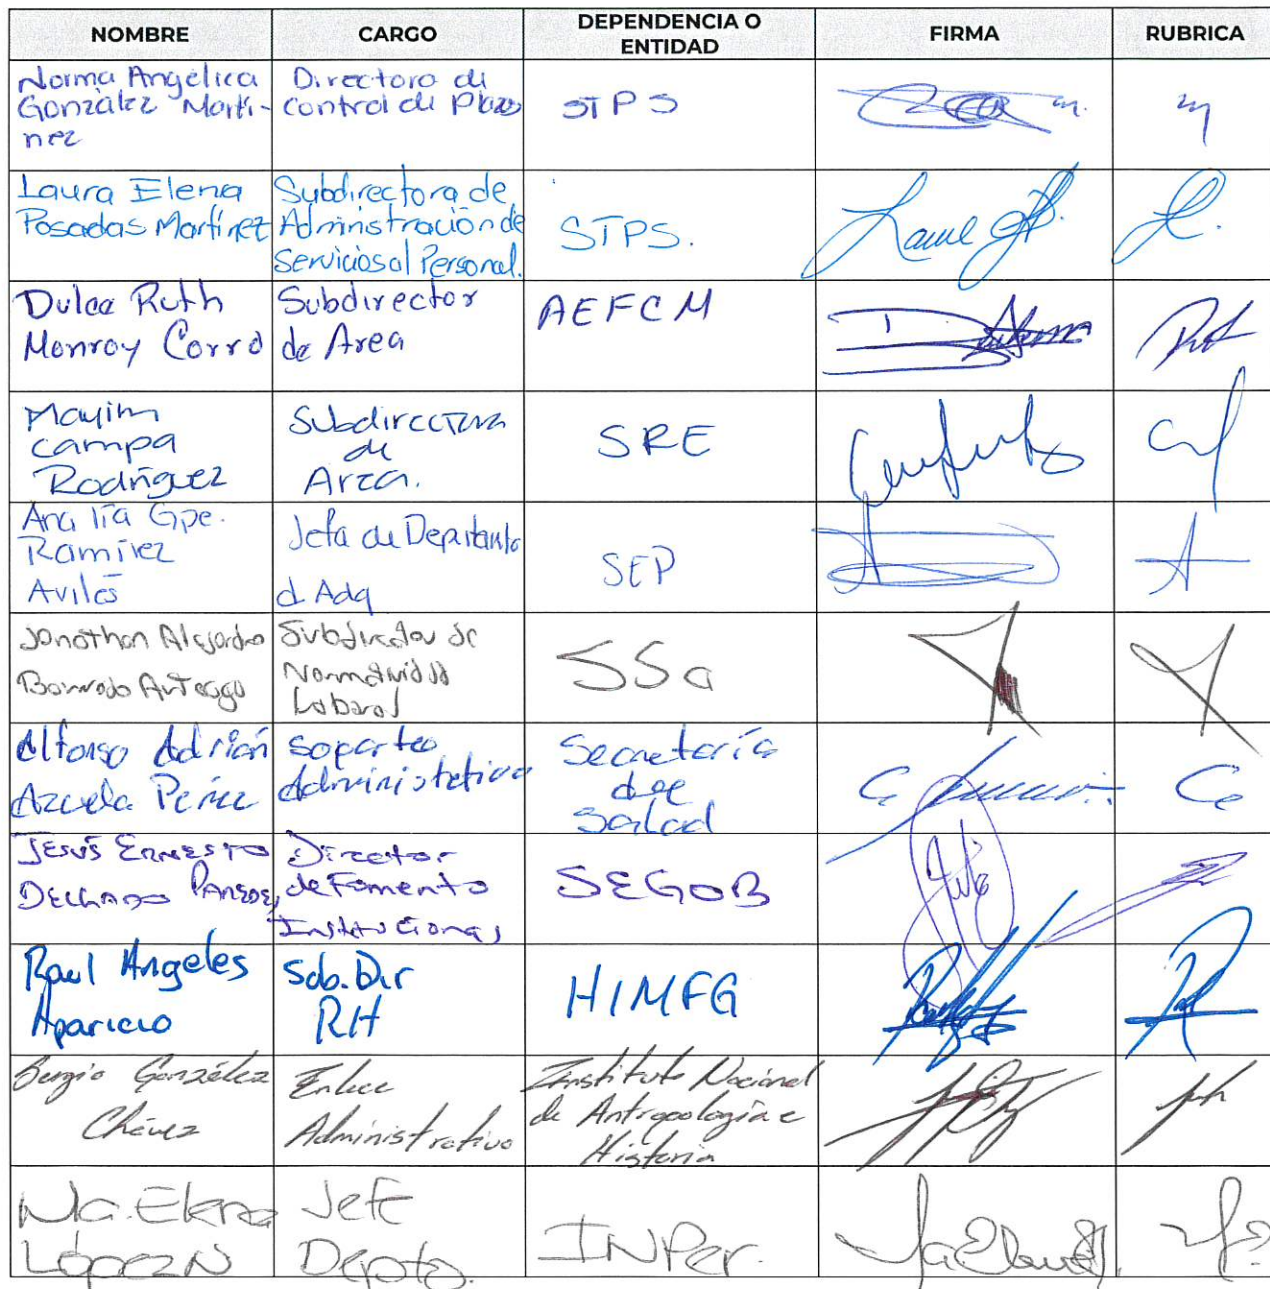 NOMBRE CARGO DEPENDENCIA O ENTIDAD FIRMA RUBRICA
Norma Angélica
González Martí-
nez
Directora de
Control de Plazas
STPS
Laura Elena
Posadas Martínez
Subdirectora de
Administración de
Servicios al Personal.
STPS.
Dulce Ruth
Monroy Corro
Subdirector
de Area
AEFCM
Mayim
Campa
Rodríguez
Subdirectora
de
Area.
SRE
Ana lía Gpe.
Ramírez
Avilés
Jefa de
d Adq
SEP
Jonathan Alejandro
Subdirector de
Normatividad
Laboral
SSa
Alfonso Adrián
Azuela Pérez
soporteo
Administrativo
Secretaría
de
Salud
JESÚS ERNESTO
DELGADO
Director
de Fomento
Institucional
SEGOB
Raul Angeles
Aparicio
Sub. Dir
RH
HIMFG
Sergio González
Chávez
Enlace
Administrativo
Instituto Nacional
de Antropología e
Historia
Ma. Elena
López N
Jefe
Depto.
INPer.